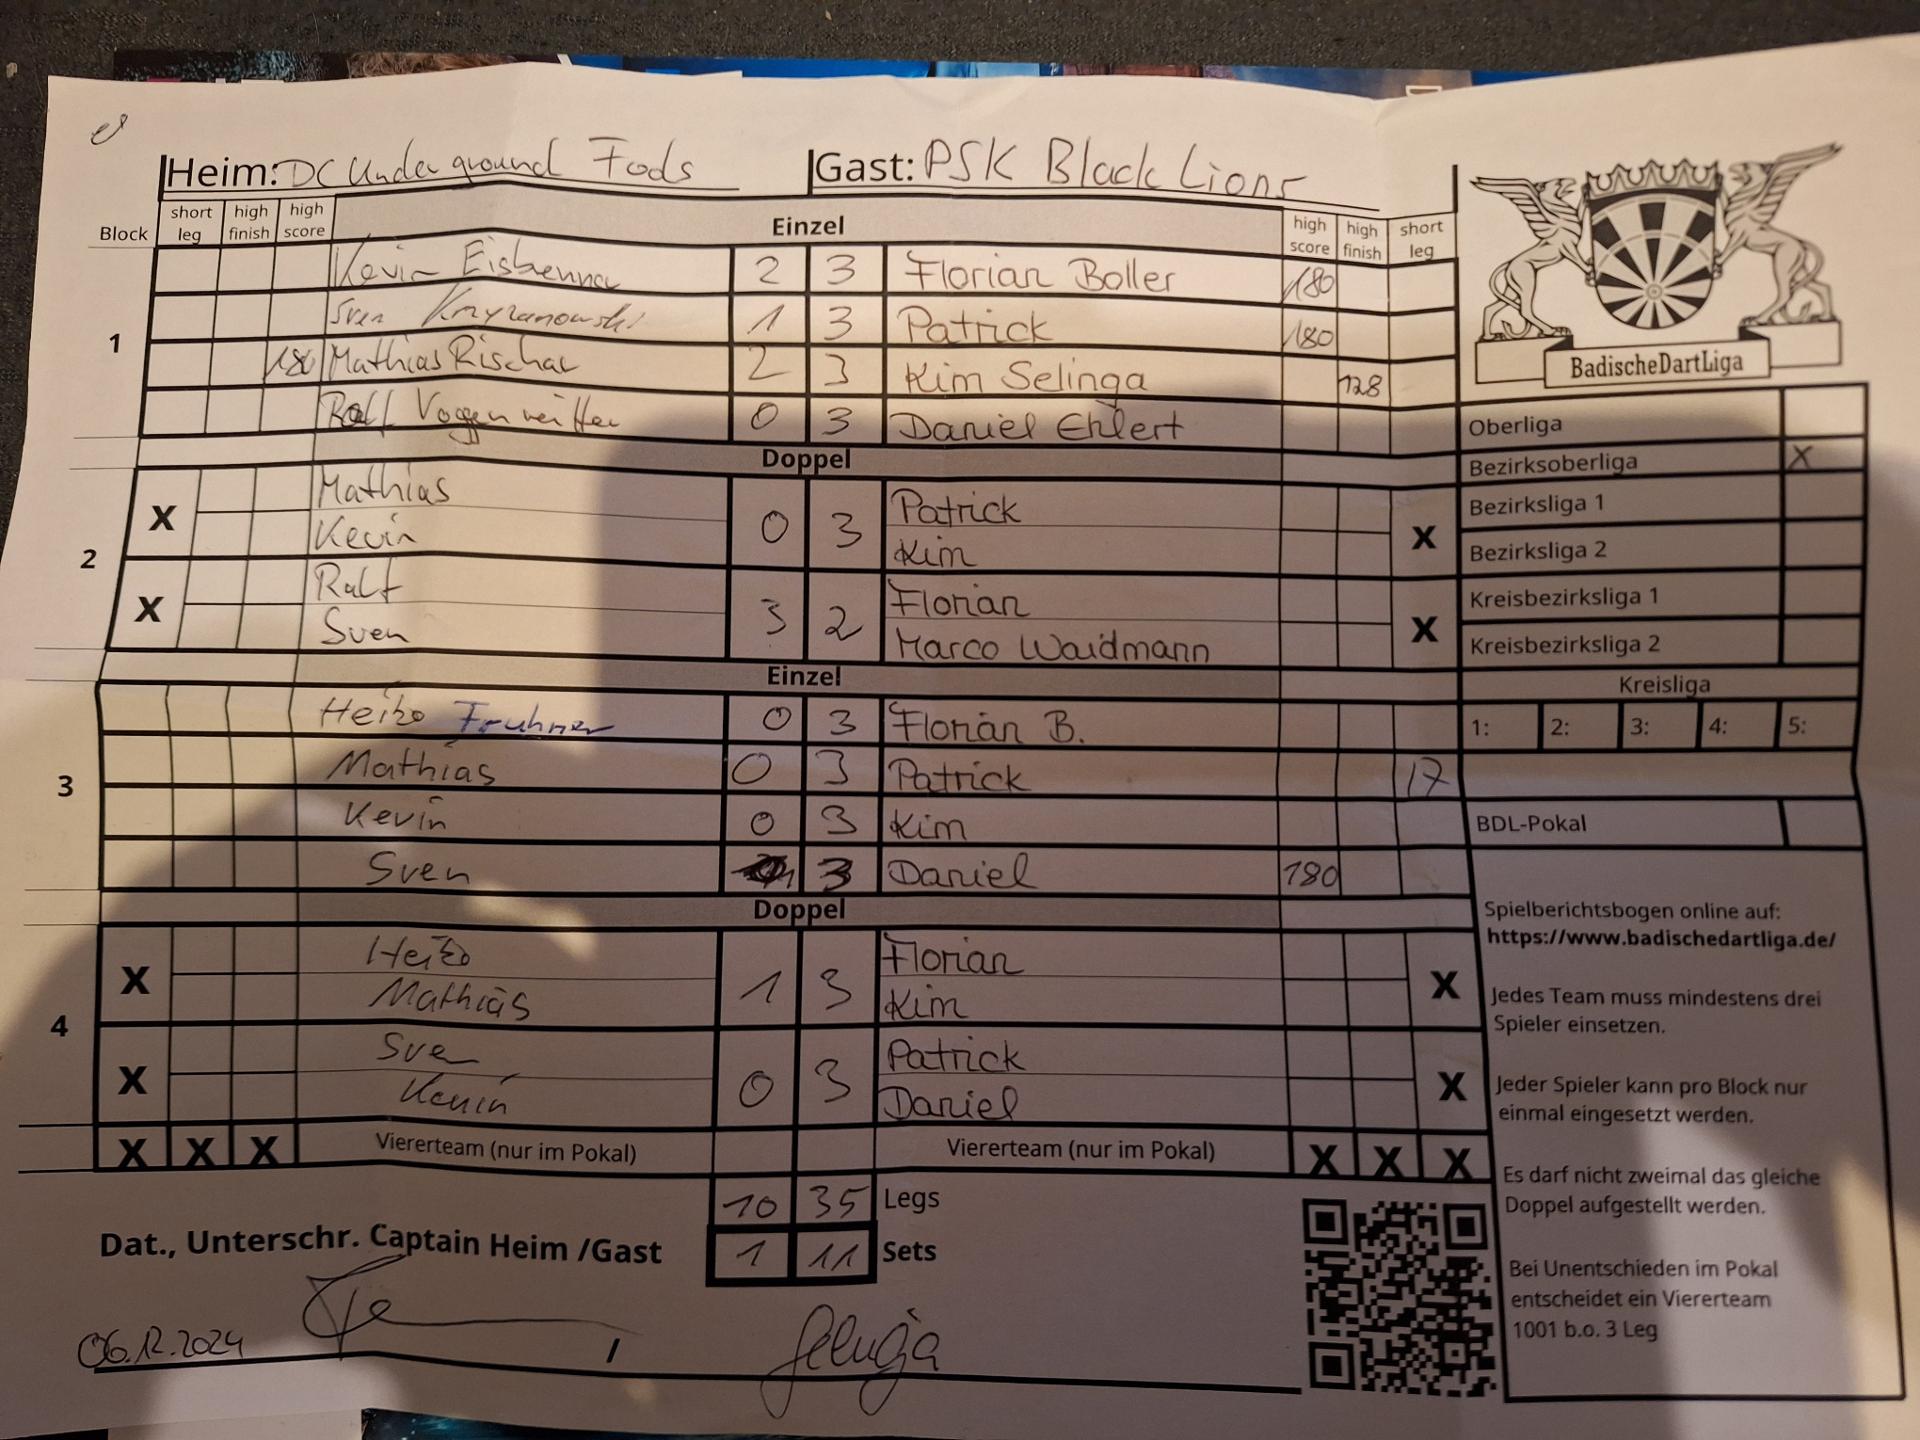 Heim: DC Underground Fods Gast: PSK Black Lions
Block short leg high finish high score Einzel high score high finish short leg
1
Kevin 2 3 Florian Boller 180
Sven Krzyzanowski 1 3 Patrick 180
180 Mathias Rischar 2 3 Kim Selinga 128
Ralf 0 3 Daniel Ehlert
Doppel
2
X Mathias 0 3 Patrick X
Kevin Kim
X Ralf 3 2 Florian X
Sven Marco Waidmann
Einzel
3
Heiko Fruhner 0 3 Florian B.
Mathias 0 3 Patrick 17
Kevin 0 3 Kim
Sven 3 Daniel 180
Doppel
4
X Heiko 1 3 Florian X
Mathias Kim
X Sven 0 3 Patrick X
Kevin Daniel
X X X Viererteam (nur im Pokal) Viererteam (nur im Pokal) X X X
10 35 Legs
1 11 Sets
Dat., Unterschr. Captain Heim /Gast
06.12.2024 /
BadischeDartLiga
Oberliga
Bezirksoberliga X
Bezirksliga 1
Bezirksliga 2
Kreisbezirksliga 1
Kreisbezirksliga 2
Kreisliga
1: 2: 3: 4: 5:
BDL-Pokal
Spielberichtsbogen online auf:
https://www.badischedartliga.de/
Jedes Team muss mindestens drei
Spieler einsetzen.
Jeder Spieler kann pro Block nur
einmal eingesetzt werden.
Es darf nicht zweimal das gleiche
Doppel aufgestellt werden.
Bei Unentschieden im Pokal
entscheidet ein Viererteam
1001 b.o. 3 Leg